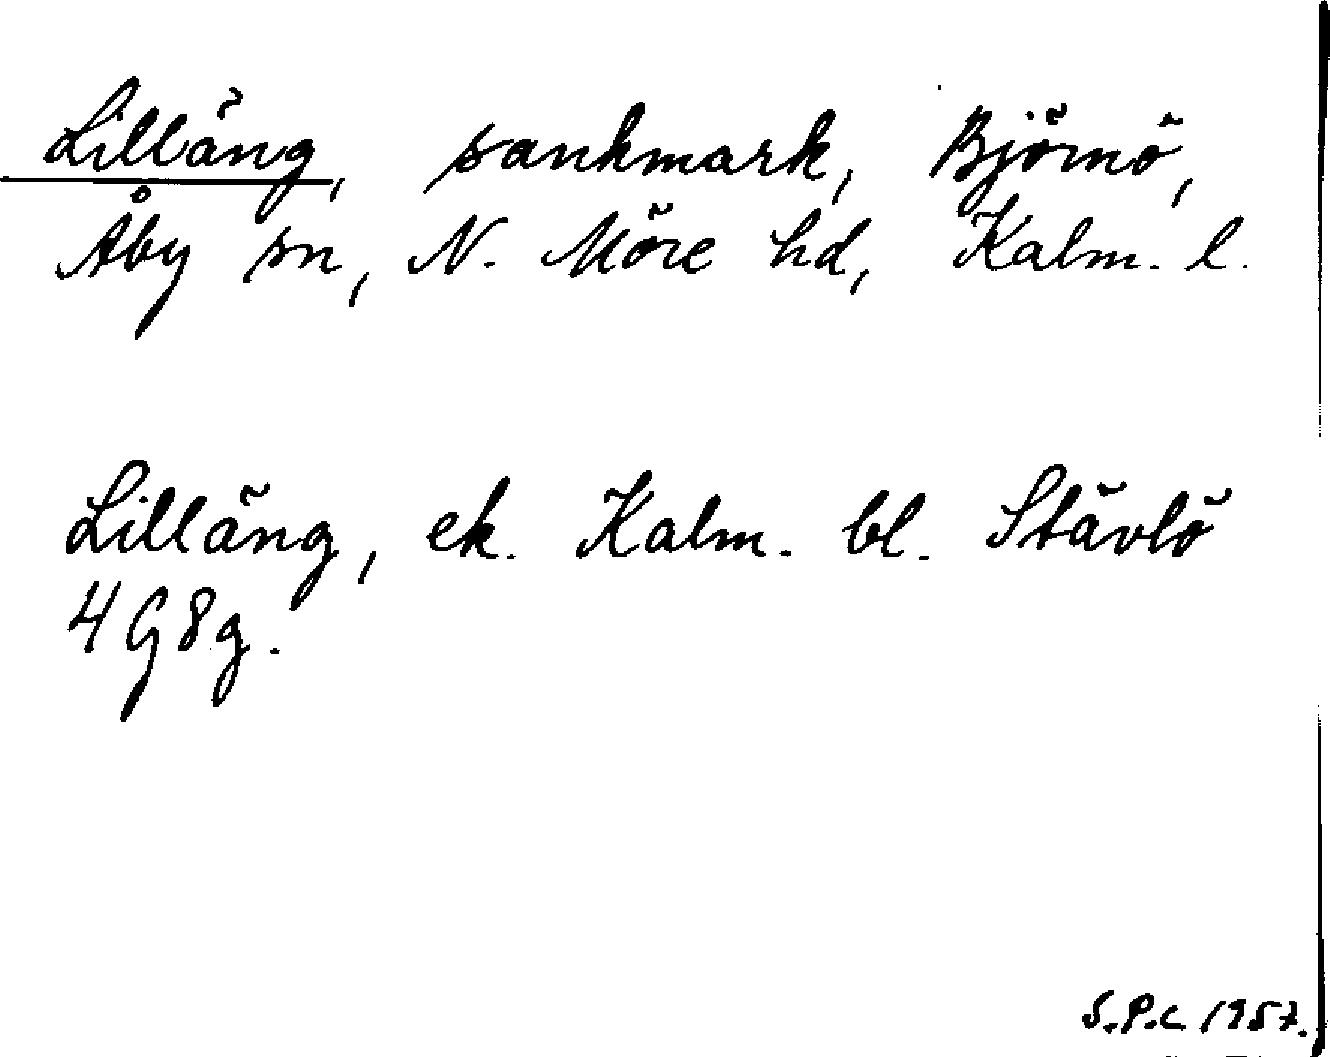 Lilläng, sankmark, Björnö,
Åby sn, N. Möre hd, Kalm. l.
Lilläng, ek. Kalm. bl. Stävlö
4G8g.
S.P.L 1957.